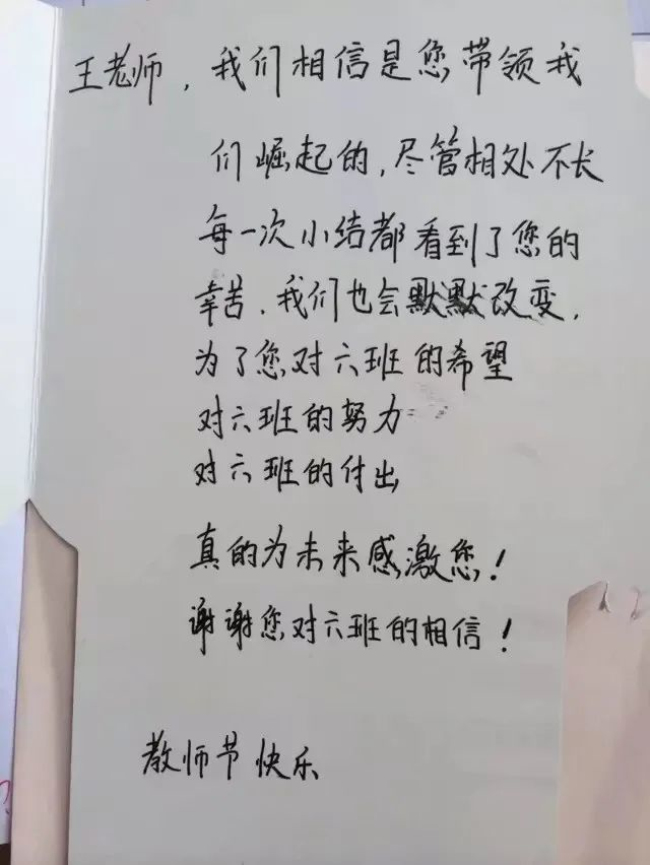 王老师，我们相信是您带领我
们崛起的，尽管相处不长
每一次小结都看到了您的
辛苦，我们也会默默改变，
为了您对六班的希望
对六班的努力
对六班的付出
真的为未来感激您！
谢谢您对六班的相信！
教师节快乐